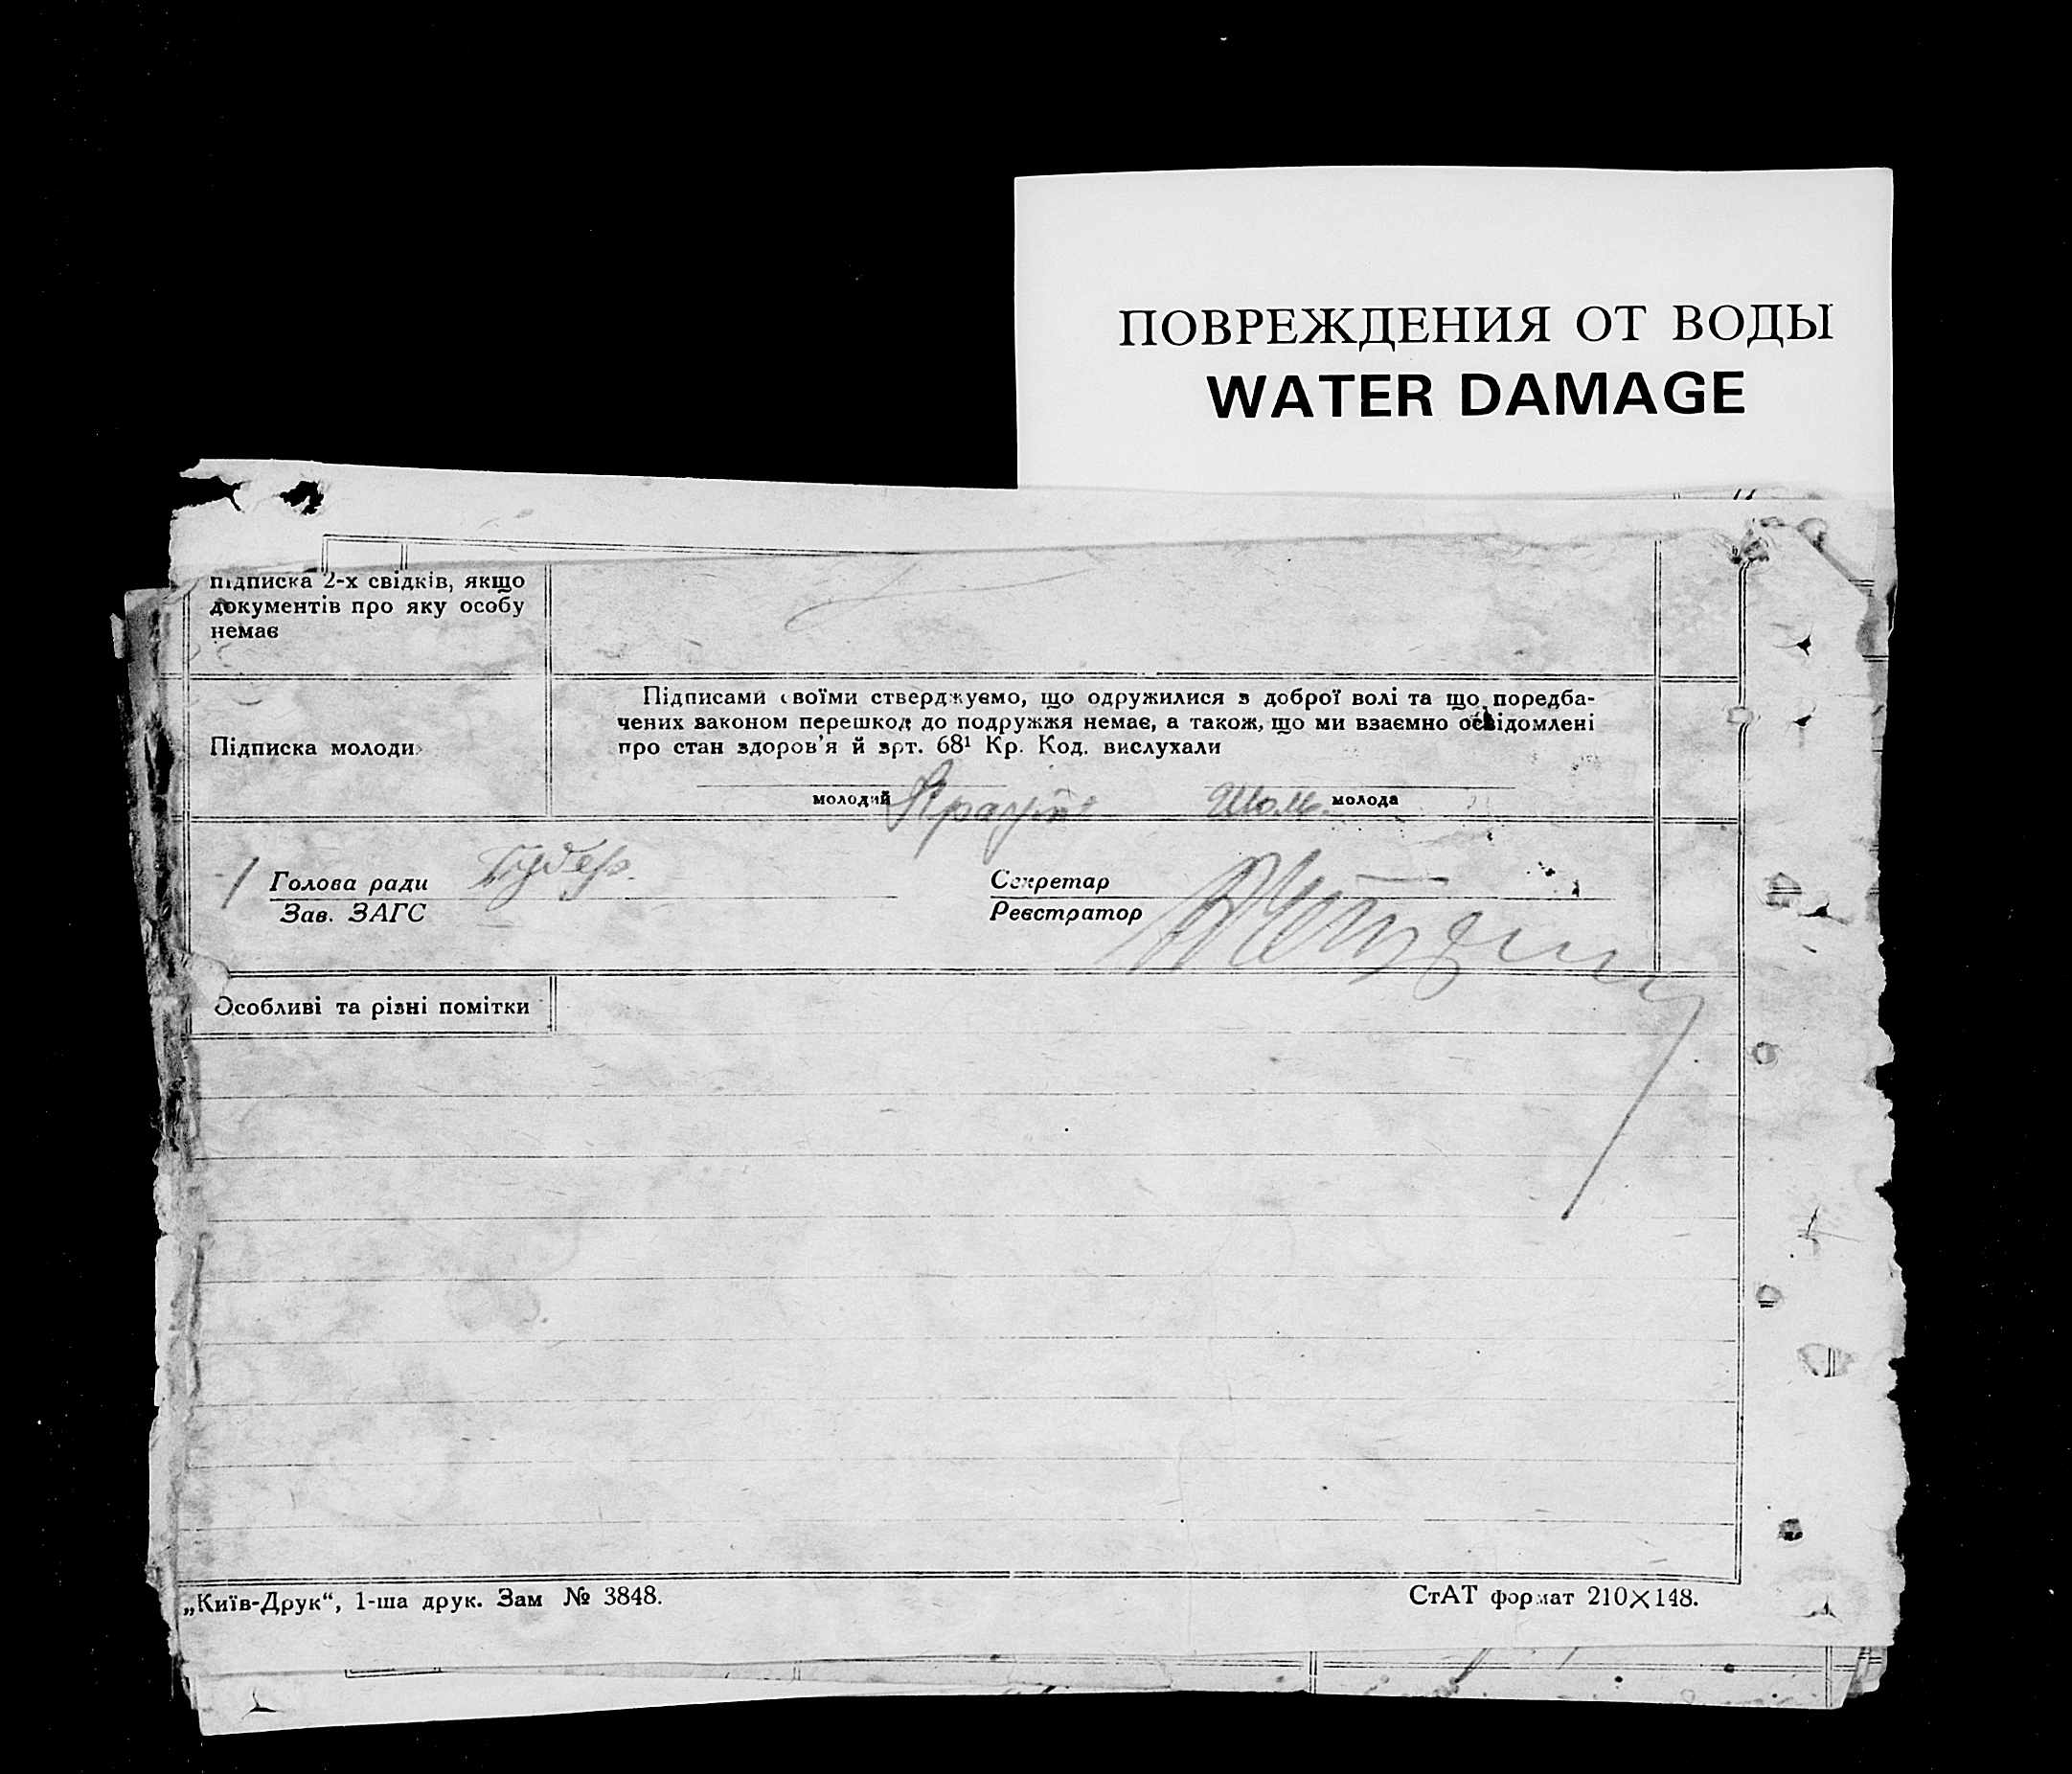 ПОВРЕЖДЕНИЯ ОТ ВОДЫ
WATER DAMAGE
підписка 2-х свідків, якщо
документів про яку особу
немає
Підписка молоди
Підписами своїми стверджуємо, що одружилися з доброї волі та що поредба-
чених законом перешкод до подружжя немає, а також, що ми взаємно освідомлені
про стан здоров'я й арт. 68¹ Кр. Код. вислухали
молодий молода
Голова ради
Зав. ЗАГС
Секретар
Реєстратор
Особливі та різні помітки
„Київ-Друк“, 1-ша друк. Зам № 3848.
СтАТ формат 210×148.